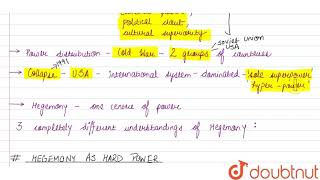 political clout,
cultural superiority
soviet union
USA
→ Power distribution - Cold War - 2 groups of countries
1991
→ Collapse - USA - international system - dominated - sole superpower/
hyper-power
→ Hegemony - one centre of power
3 completely different understandings of Hegemony :
# HEGEMONY AS HARD POWER
doubtnut